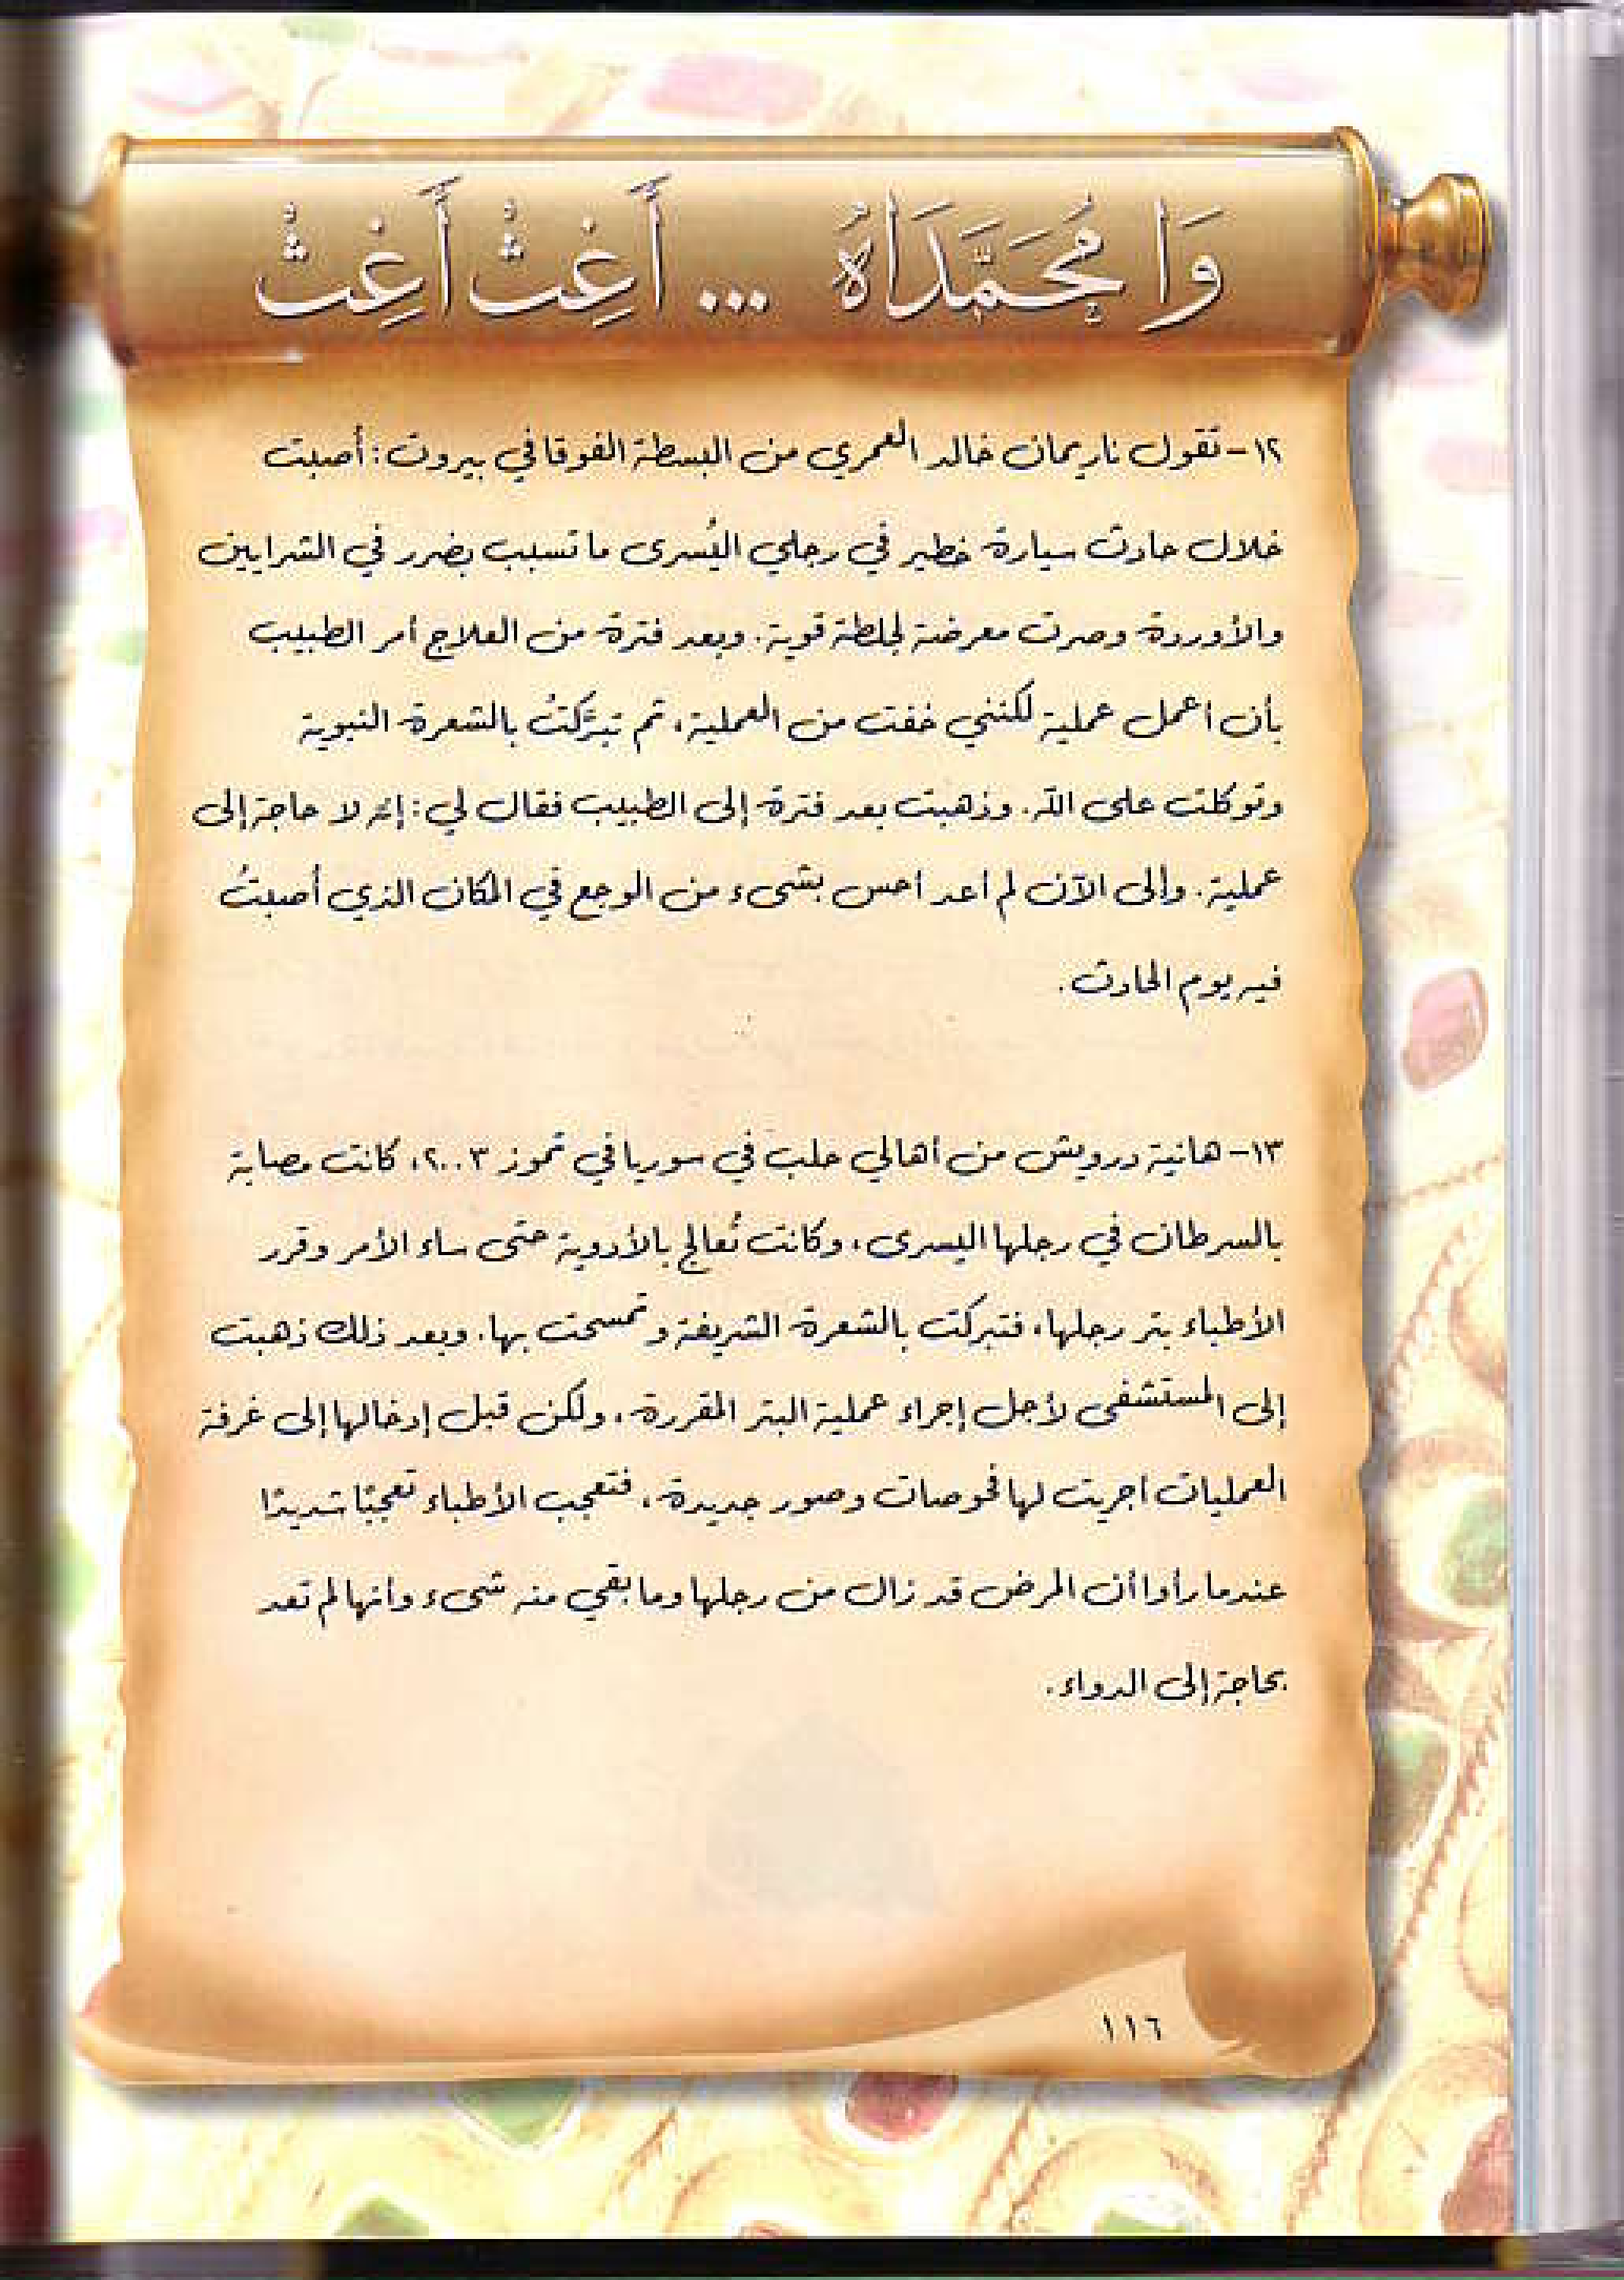 وَا مُحَمَّدَاهُ ... أَغِثْ أَغِثْ
١٢- تقول ناريمان خالد العمري من البسطة الفوقا في بيروت: أُصبت
خلال حادث سيارة خطير في رجلي اليُسرى ما تسبب بضرر في الشرايين
والأوردة وصرت معرضة لجلطة قوية. وبعد فترة من العلاج أمر الطبيب
بأن أعمل عملية لكنني خفت من العملية، ثم تبرَّكتُ بالشعرة النبوية
وتوكلت على الله. وذهبت بعد فترة إلى الطبيب فقال لي: إنه لا حاجة إلى
عملية. وإلى الآن لم أعد أحس بشىء من الوجع في المكان الذي أُصبتُ
فيه يوم الحادث.
١٣- هانية درويش من أهالي حلب في سوريا في تموز ٢٠٠٣، كانت مصابة
بالسرطان في رجلها اليسرى، وكانت تُعالج بالأدوية حتى ساء الأمر وقرر
الأطباء بتر رجلها، فتبركت بالشعرة الشريفة وتمسحت بها. وبعد ذلك ذهبت
إلى المستشفى لأجل إجراء عملية البتر المقررة، ولكن قبل إدخالها إلى غرفة
العمليات أجريت لها فحوصات وصور جديدة، فتعجب الأطباء تعجبًا شديدًا
عندما رأوا أن المرض قد زال من رجلها وما بقي منه شىء وأنها لم تعد
بحاجة إلى الدواء.
١١٦